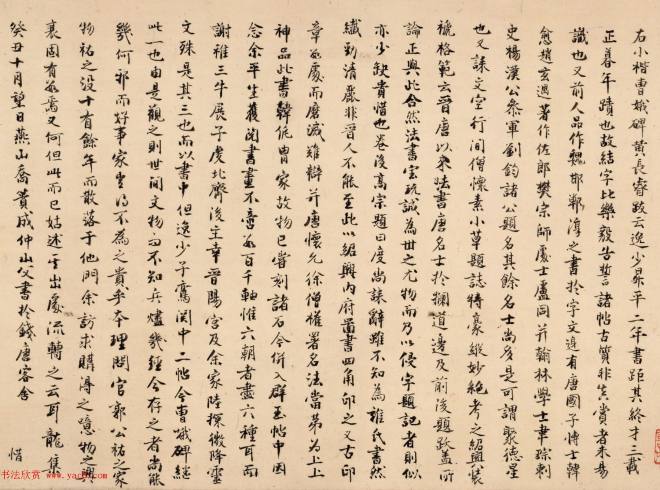 右小楷曹娥碑黄長睿跋云逸少昇平二年書距其終才三載
正暮年蹟也故結字比樂毅告誓諸帖古質非真賞者未易
識也又前人品作魏邯鄲淳之書於字文邊有唐國子博士韓
愈趙玄遇著作佐郎樊宗師處士盧同并翰林學士韋琮刺
史楊漢公參軍劉鈞諸公題名其餘名士尚多是可謂聚德星
也又誄文空行間僧懷素小草題誌特豪縱妙絶考之紹興裝
褫格範云晉唐以來法書唐名士於欄道邊及前後題跋盖前
論正與此合然法書室硫誠為世之尤物而乃以侵字題記者則似
亦少缺貴惜也卷後高宗題曰度尚誄辭雖不知為誰氏書然
纖勁清麗非晉人不能至此以紹興内府啚書四角印之又古印
章處而磨滅難辯并唐懷充徐僧權署名法當第為上上
神品此書韓侂胄家故物已嘗刻諸石今併入群玉帖中因
念余平生獲閲書畫不啻數百千軸惟六朝者盡六種耳而
謝稚三牛展子虔北齊後主幸晉陽宮及余家陸探微降靈
文殊是其三也而以書中但逸少子鸞閑中二帖今曹娥碑継
此一也由是觀之則世間文物不知兵燼幾經今存之者尚能
幾何邪而好事家豈得不為之貴乎本理問官郭公祐之家
物祐之没十有餘年而散落于他門余訪求購得之噫物之興
衰固有焉又何但此而已姑述其出處流轉之云耳龍集
癸丑十月望日燕山喬簣成仲山父書於錢唐客舎
惜
书法欣赏